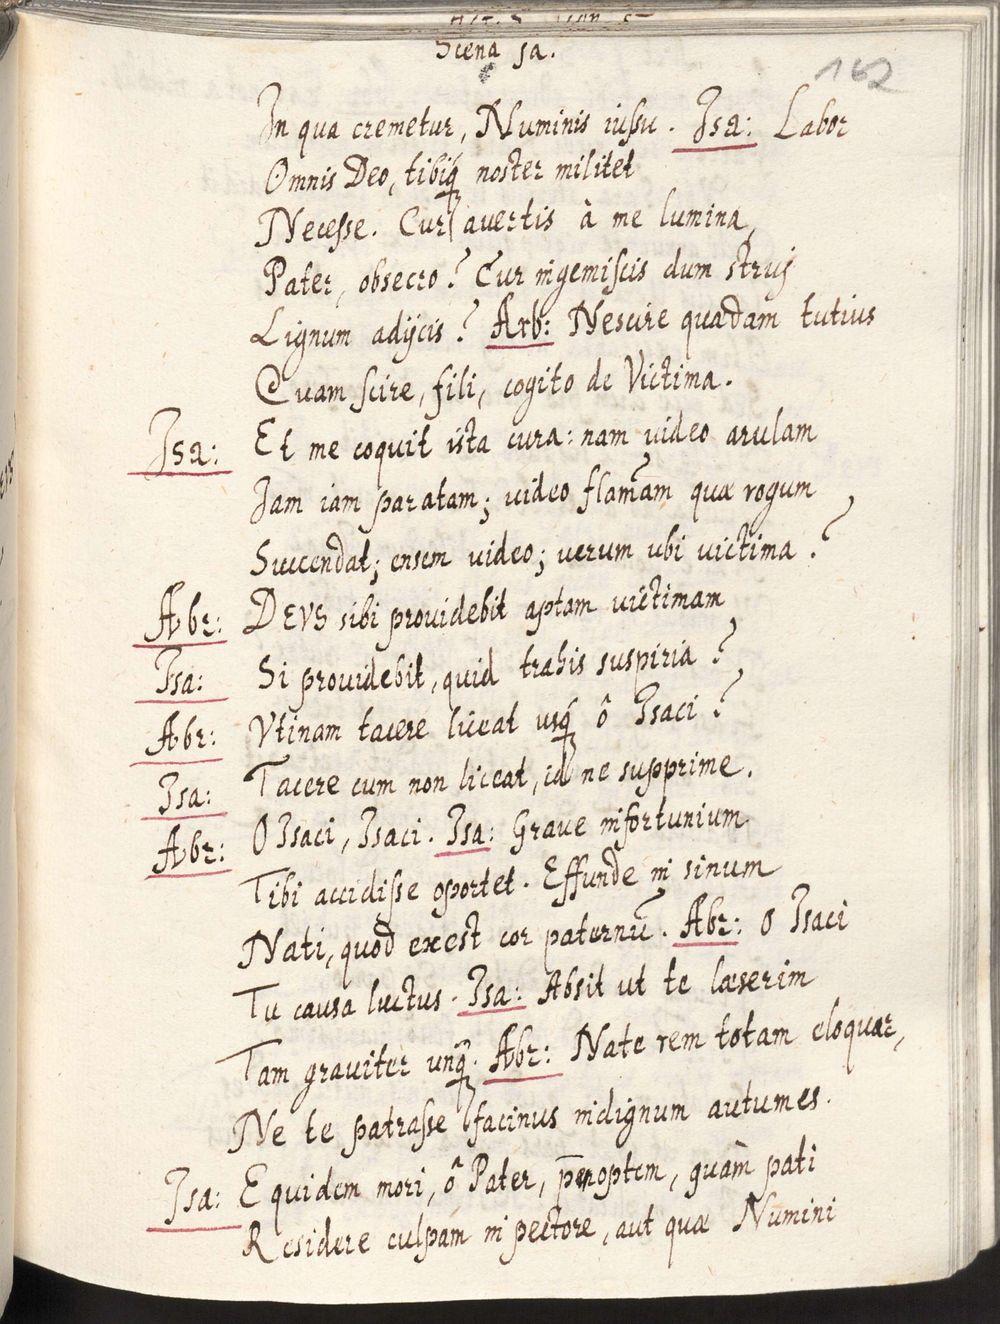 Scena 5a.
162
In qua cremetur, Numinis iussu. Isa: Labor
Omnis Deo, tibiq́ noster militet
Necesse. Cur avertis à me lumina,
Pater, obsecro? Cur ingemiscis dum struj
Lignum adijcis? Arb: Nescire quadam tutius
Quam scire, fili, cogito de Victima.
Isa: Et me coquit ista cura: nam video arulam
Jam iam paratam; video flam̄am quæ rogum
Succendat; ensem video; verum ubi victima?
Abr: DEVS sibi providebit aptam victimam
Isa: Si providebit, quid trahis suspiria?
Abr: Vtinam tacere liceat usq́ ô Isaci?
Isa: Tacere cum non liceat, id ne supprime.
Abr: O Isaci, Isaci. Isa: Grave infortunium
Tibi accidisse oportet. Effunde in sinum
Nati, quod exest cor paternū. Abr: O Isaci
Tu causa luctus. Isa: Absit ut te læserim
Tam graviter unq̄. Abr: Nate rem totam eloquar,
Ne te patrasse facinus indignum autumes.
Isa: Equidem mori, ô Pater, peroptem, quàm pati
Residere culpam in pectore, aut quæ Numini